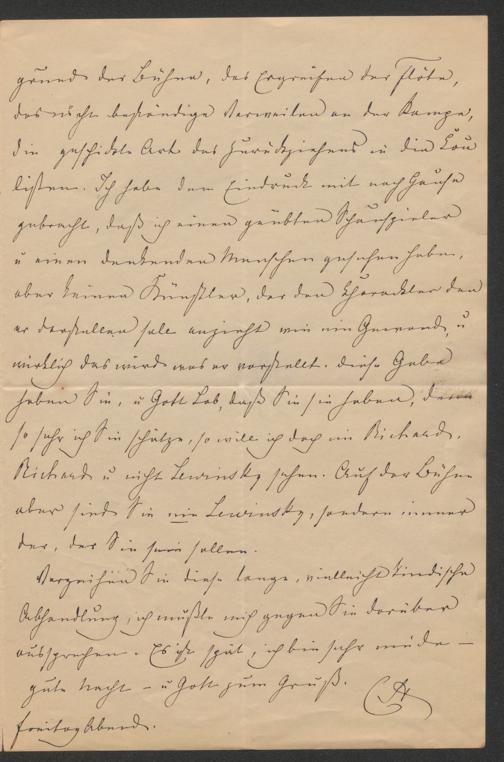 grund der Bühne, das Ergreifen der Flöte,
das nicht beständige Verweilen an der Rampe,
die geschickte Art des Zurückziehens in die Cou
lissen. Ich habe den Eindruck mit nach Hause
gebracht, daß ich einen geübten Schauspieler
u einen denkenden Menschen gesehen habe,
aber keinen Künstler, der den Charackter den
er darstellen soll anzieht wie ein Gewand, u
wirklich das wird was er vorstellt. Diese Gabe
haben Sie, u Gott Lob, daß Sie sie haben, denn
so sehr ich Sie schätze, so will ich doch im Richard,
Richard u nicht Lewinsky sehen. Auf der Bühne
aber sind Sie nie Lewinsky, sondern immer
der, der Sie sein sollen.
Verzeihen Sie diese lange, vielleicht kindische
Abhandlung, ich mußte mich gegen Sie darüber
aussprechen. Es ist spät, ich bin sehr müde –
gute Nacht – u Gott zum Gruß.
Freitag Abend.